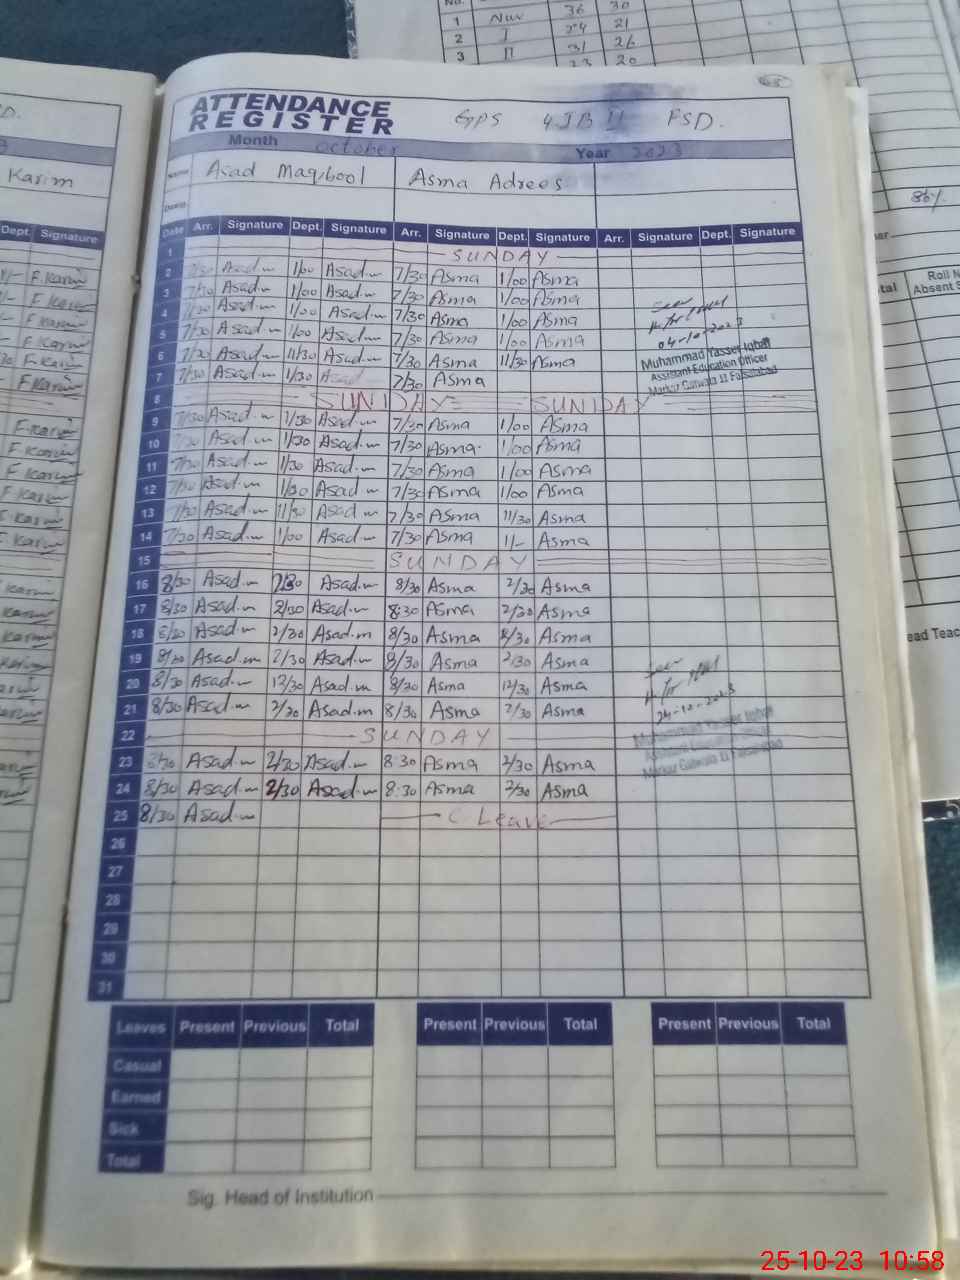 No.
1 Nur 36 30
2 I 24 21
3 II 31 26
23 20
ATTENDANCE
REGISTER
GPS 4JB II FSD.
Month October Year 2023
Name Asad Maqbool Asma Adrees
Date Arr. Signature Dept. Signature Arr. Signature Dept. Signature Arr. Signature Dept. Signature
1 SUNDAY
2 7/30 Asad.m 1/00 Asad.m 7/30 Asma 1/00 Asma
3 7/30 Asad.m 1/00 Asad.m 7/30 Asma 1/00 Asma
4 7/30 Asad.m 1/00 Asad.m 7/30 Asma 1/00 Asma
5 7/30 Asad.m 1/00 Asad.m 7/30 Asma 1/00 Asma
6 7/30 Asad.m 11/30 Asad.m 7/30 Asma 11/30 Asma
7 7/30 Asad.m 1/30 Asad 7/30 Asma
04-10-2023
Muhammad Yasser Iqbal
Assistant Education Officer
Markaz Gatwala II Faisalabad
8 SUNDAY SUNDAY
9 7/30 Asad.m 1/30 Asad.m 7/30 Asma 1/00 Asma
10 7/30 Asad.m 1/30 Asad.m 7/30 Asma 1/00 Asma
11 7/30 Asad.m 1/30 Asad.m 7/30 Asma 1/00 Asma
12 7/30 Asad.m 1/30 Asad.m 7/30 Asma 1/00 Asma
13 7/30 Asad.m 11/30 Asad.m 7/30 Asma 11/30 Asma
14 7/30 Asad.m 1/00 Asad.m 7/30 Asma 11/- Asma
15 SUNDAY
16 8/30 Asad.m 2/30 Asad.m 8/30 Asma 2/30 Asma
17 8/30 Asad.m 2/30 Asad.m 8:30 Asma 2/30 Asma
18 8/30 Asad.m 2/30 Asad.m 8/30 Asma 2/30 Asma
19 8/30 Asad.m 2/30 Asad.m 8/30 Asma 2/30 Asma
20 8/30 Asad.m 12/30 Asad.m 8/30 Asma 12/30 Asma
21 8/30 Asad.m 2/30 Asad.m 8/30 Asma 2/30 Asma
22 SUNDAY
Muhammad Yasser Iqbal
Assistant Education Officer
Markaz Gatwala II Faisalabad
23 8/30 Asad.m 2/30 Asad.m 8:30 Asma 2/30 Asma
24 8/30 Asad.m 2/30 Asad.m 8:30 Asma 2/30 Asma
25 8/30 Asad.m C Leave
26
27
28
29
30
31
Leaves Present Previous Total Present Previous Total Present Previous Total
Casual
Earned
Sick
Total
Sig. Head of Institution
Karim
Dept. Signature
F.Karim
F.Karim
F.Karim
F.Karim
F.Karim
F.Karim
F.Karim
F.Karim
F.Karim
F.Karim
86%
Roll N
Absent S
ead Teac
25-10-23 10:58